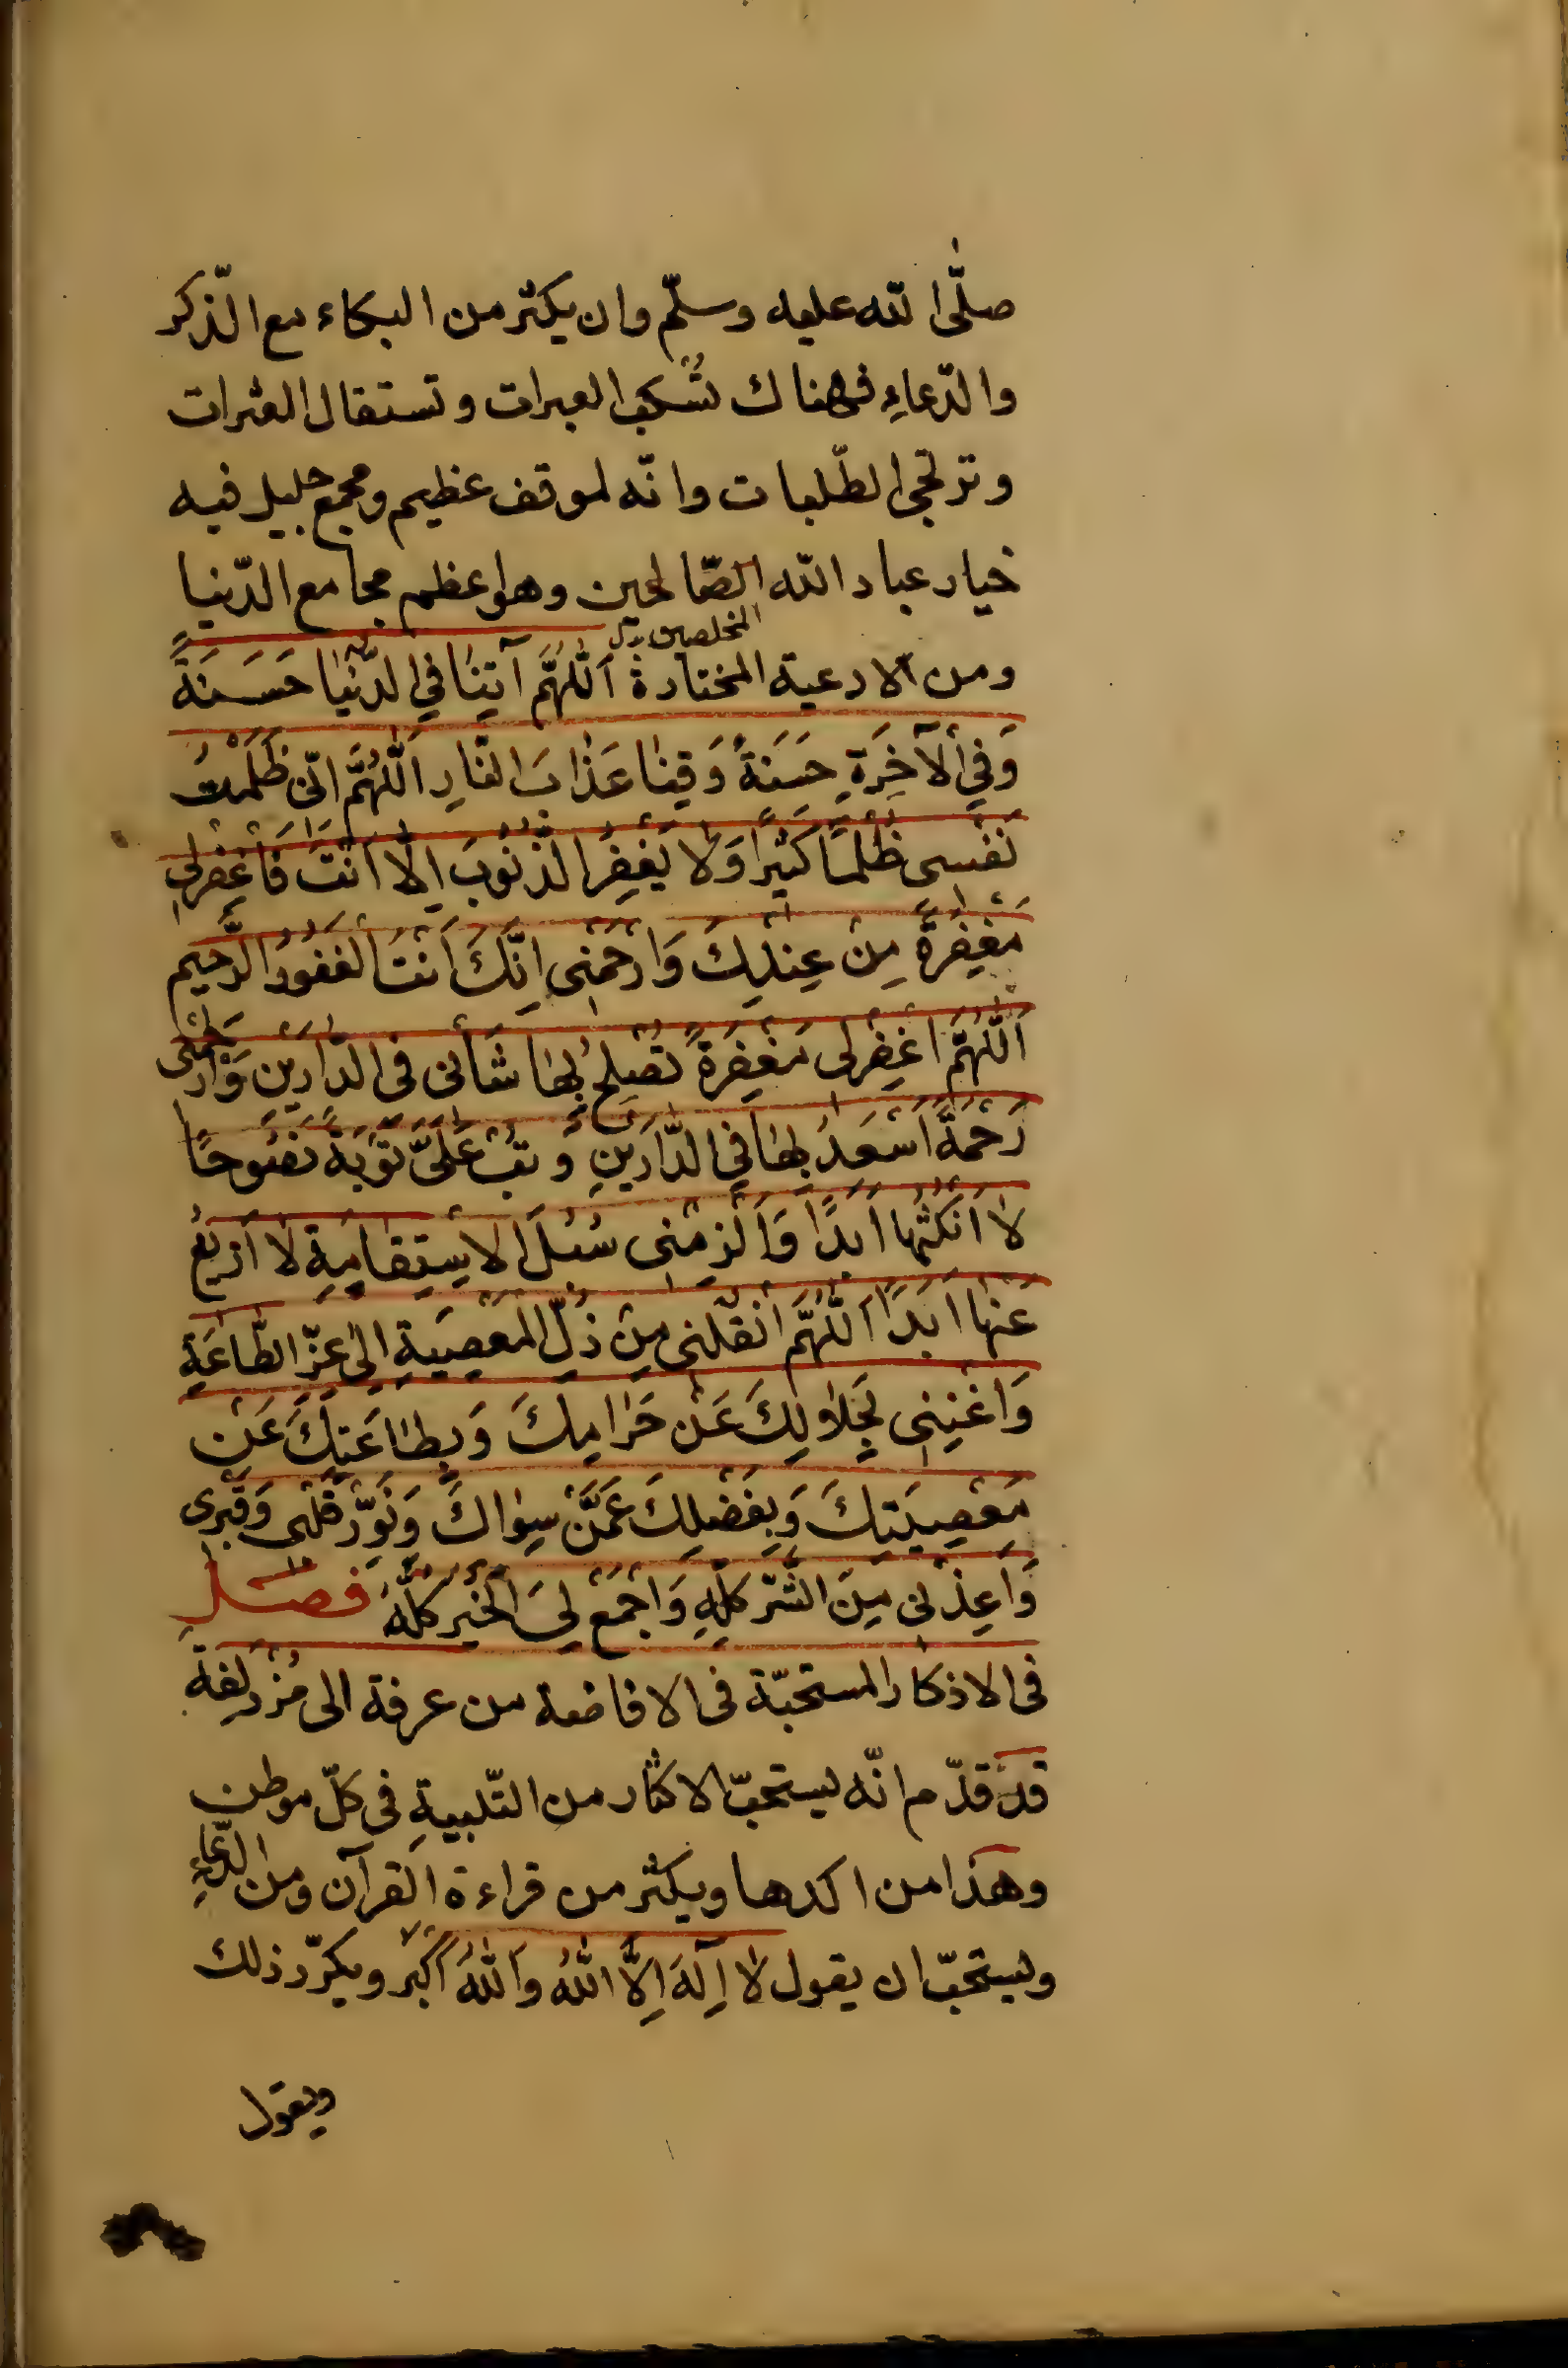 صلّى الله عليه وسلّم وان يكثر من البكاء مع الذّكر
والدّعاءِ فهناك تُسكب العبرات وتستقال العثرات
وترتجى الطّلبات وانّه لموقف عظيم ومجمع جليل فيه
خيار عباد الله الصّالحين وهو اعظم مجامع الدّنيا
المخلصين
ومن الادعية المختارة اَللّٰهُمَّ آتِنَا فِي الدُّنْيَا حَسَنَةً
وَفِي الْآخِرَةِ حَسَنَةً وَقِنَا عَذَابَ النَّارِ اَللّٰهُمَّ اِنّى ظَلَمْتُ
نَفْسِى ظُلْمًا كَثِيرًا وَلَا يَغْفِرُ الذُّنُوبَ اِلَّا اَنْتَ فَاغْفِرْلِى
مَغْفِرَةً مِنْ عِنْدِكَ وَارْحَمْنِى اِنَّكَ اَنْتَ الْغَفُورُ الرَّحِيم
اَللّٰهُمَّ اغْفِرْلِى مَغْفِرَةً تُصْلِحُ بِهَا شَأْنِى فِى الدَّارَيْنِ وَارْحَمْنِى
رَحْمَةً اَسْعَدُ بِهَا فِي الدَّارَيْنِ وَتُبْ عَلَىَّ تَوْبَةً نَصُوحًا
لَا اَنْكُثُهَا اَبَدًا وَاَلْزِمْنِى سُبُلَ الْاِسْتِقَامَةِ لَا اَزِيغُ
عَنْهَا اَبَدًا اَللّٰهُمَّ انْقُلْنِى مِنْ ذُلِّ الْمَعْصِيَةِ اِلَى عِزِّ الطَّاعَةِ
وَاَغْنِنِى بِحَلَالِكَ عَنْ حَرَامِكَ وَبِطَاعَتِكَ عَنْ
مَعْصِيَتِكَ وَبِفَضْلِكَ عَمَّنْ سِوَاكَ وَنَوِّرْ قَلْبِى وَقَبْرِى
وَاَعِذْنِى مِنَ الشَّرِّ كُلِّهِ وَاجْمَعْ لِيَ الْخَيْرَ كُلَّهُ فصل
فى الاذكار المستحبّة فى الافاضة من عرفة الى مُزْدَلِفَة
قد قدّم انّه يستحبّ الاكثار من التّلبيةِ فى كلّ موطن
وهذا من اكدها ويكثر من قراءة القرآن ومن الدّعاءِ
ويستحبّ ان يقول لَا اِلٰهَ اِلَّا اللّٰهُ وَاللّٰهُ اَكْبَرُ ويكرّر ذلك
ويقول